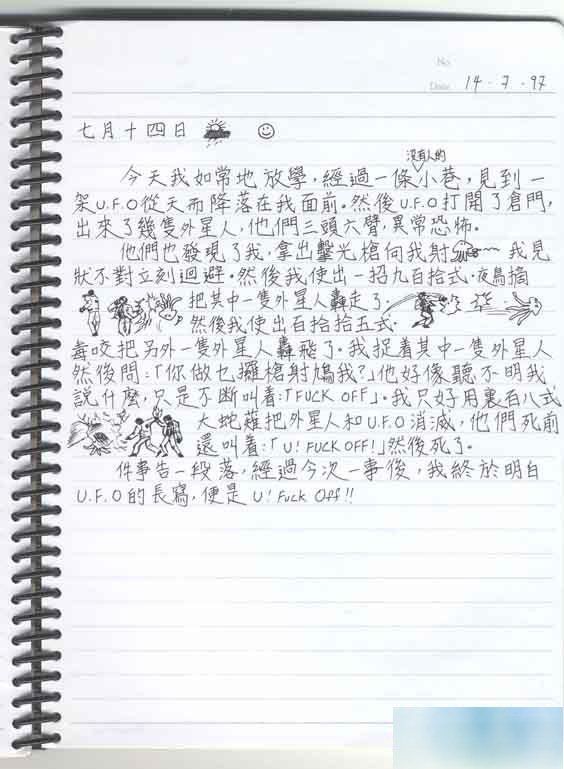 No
Date 14·7·97
七月十四日
没有人的
今天我如常地放學，經過一條小巷，見到一
架U.F.O從天而降落在我面前。然後U.F.O打開了倉門，
出來了幾隻外星人，他們三頭六臂，異常恐怖。
他們也發現了我，拿出擊光槍向我射 我見
狀不對立刻迴避。然後我使出一招九百拾式·夜鳥摘
把其中一隻外星人轟走了。
然後我使出百拾拾五式·
毒咬把另外一隻外星人轟飛了。我捉着其中一隻外星人
然後問：「你做乜攞槍射鳩我？」他好像聽不明我
說什麼，只是不斷叫着：「FUCK OFF」。我只好用裏百八式
大蛇薙把外星人和U.F.O消滅，他們死前
還叫着：「U! FUCK OFF!」然後死了。
件事告一段落，經過今次一事後，我終於明白
U.F.O的長寫，便是U! Fuck Off!!